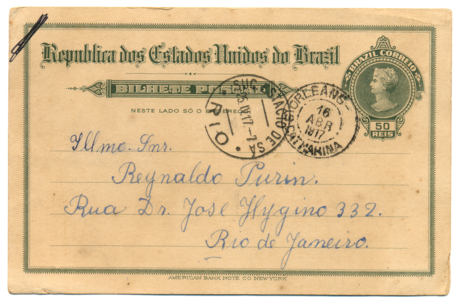 Republica dos Estados Unidos do Brazil
BRAZIL CORREIO
50
REIS
BILHETE
NESTE LADO SÓ O
RIO
ORLEANS
16
ABR
1917
Illmo. Snr.
Reynaldo Purin.
Rua Dr. José Hygino 332.
Rio de Janeiro.
AMERICAN BANK NOTE CO. NEW YORK.